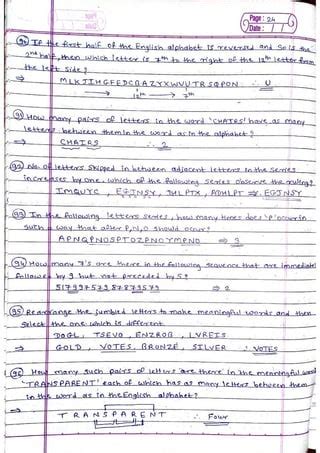 Page : 24
Date : / /
90) If the first half of the English alphabet is reversed and so is the
2nd half, then which letter is 7th to the right of the 12th letter from
the left side?
→ MLKJIHGFEDCBAZYXWVUTSRQPON ∴ U
12th → 7th
91) How many pairs of letters in the word 'CHAIRS' have as many
letters between them in the word as in the alphabet?
⇒ CHAIRS ∴ 2
92) No. of letters skipped in between adjacent letters in the series
increases by one. which of the following series observe the ruling?
IMQUYC, EGJNSY, JULPTX, ADHLPT ⇒ EGJNSY
93) In the following letters series, how many times does 'P' occur in
such a way that after P, N, O should occur?
APNQPNOSPTOZPNOYMPNO ⇒ 3
94) How many 7's are there in the following sequence that are immediate
followed by 9 but not preceded by 5?
⇒ 2
95) Rearrange the jumbled letters to make meaningful words and then
select the one which is different
DOGL, TSEVO, ENZROB, LVREIS
⇒ GOLD, VOTES, BRONZE, SILVER ∴ VOTES
96) How many such pairs of letters are there in the meaningful word
'TRANSPARENT' each of which has as many letters between them
in the word as in the English alphabet?
⇒ TRANSPARENT ∴ Four